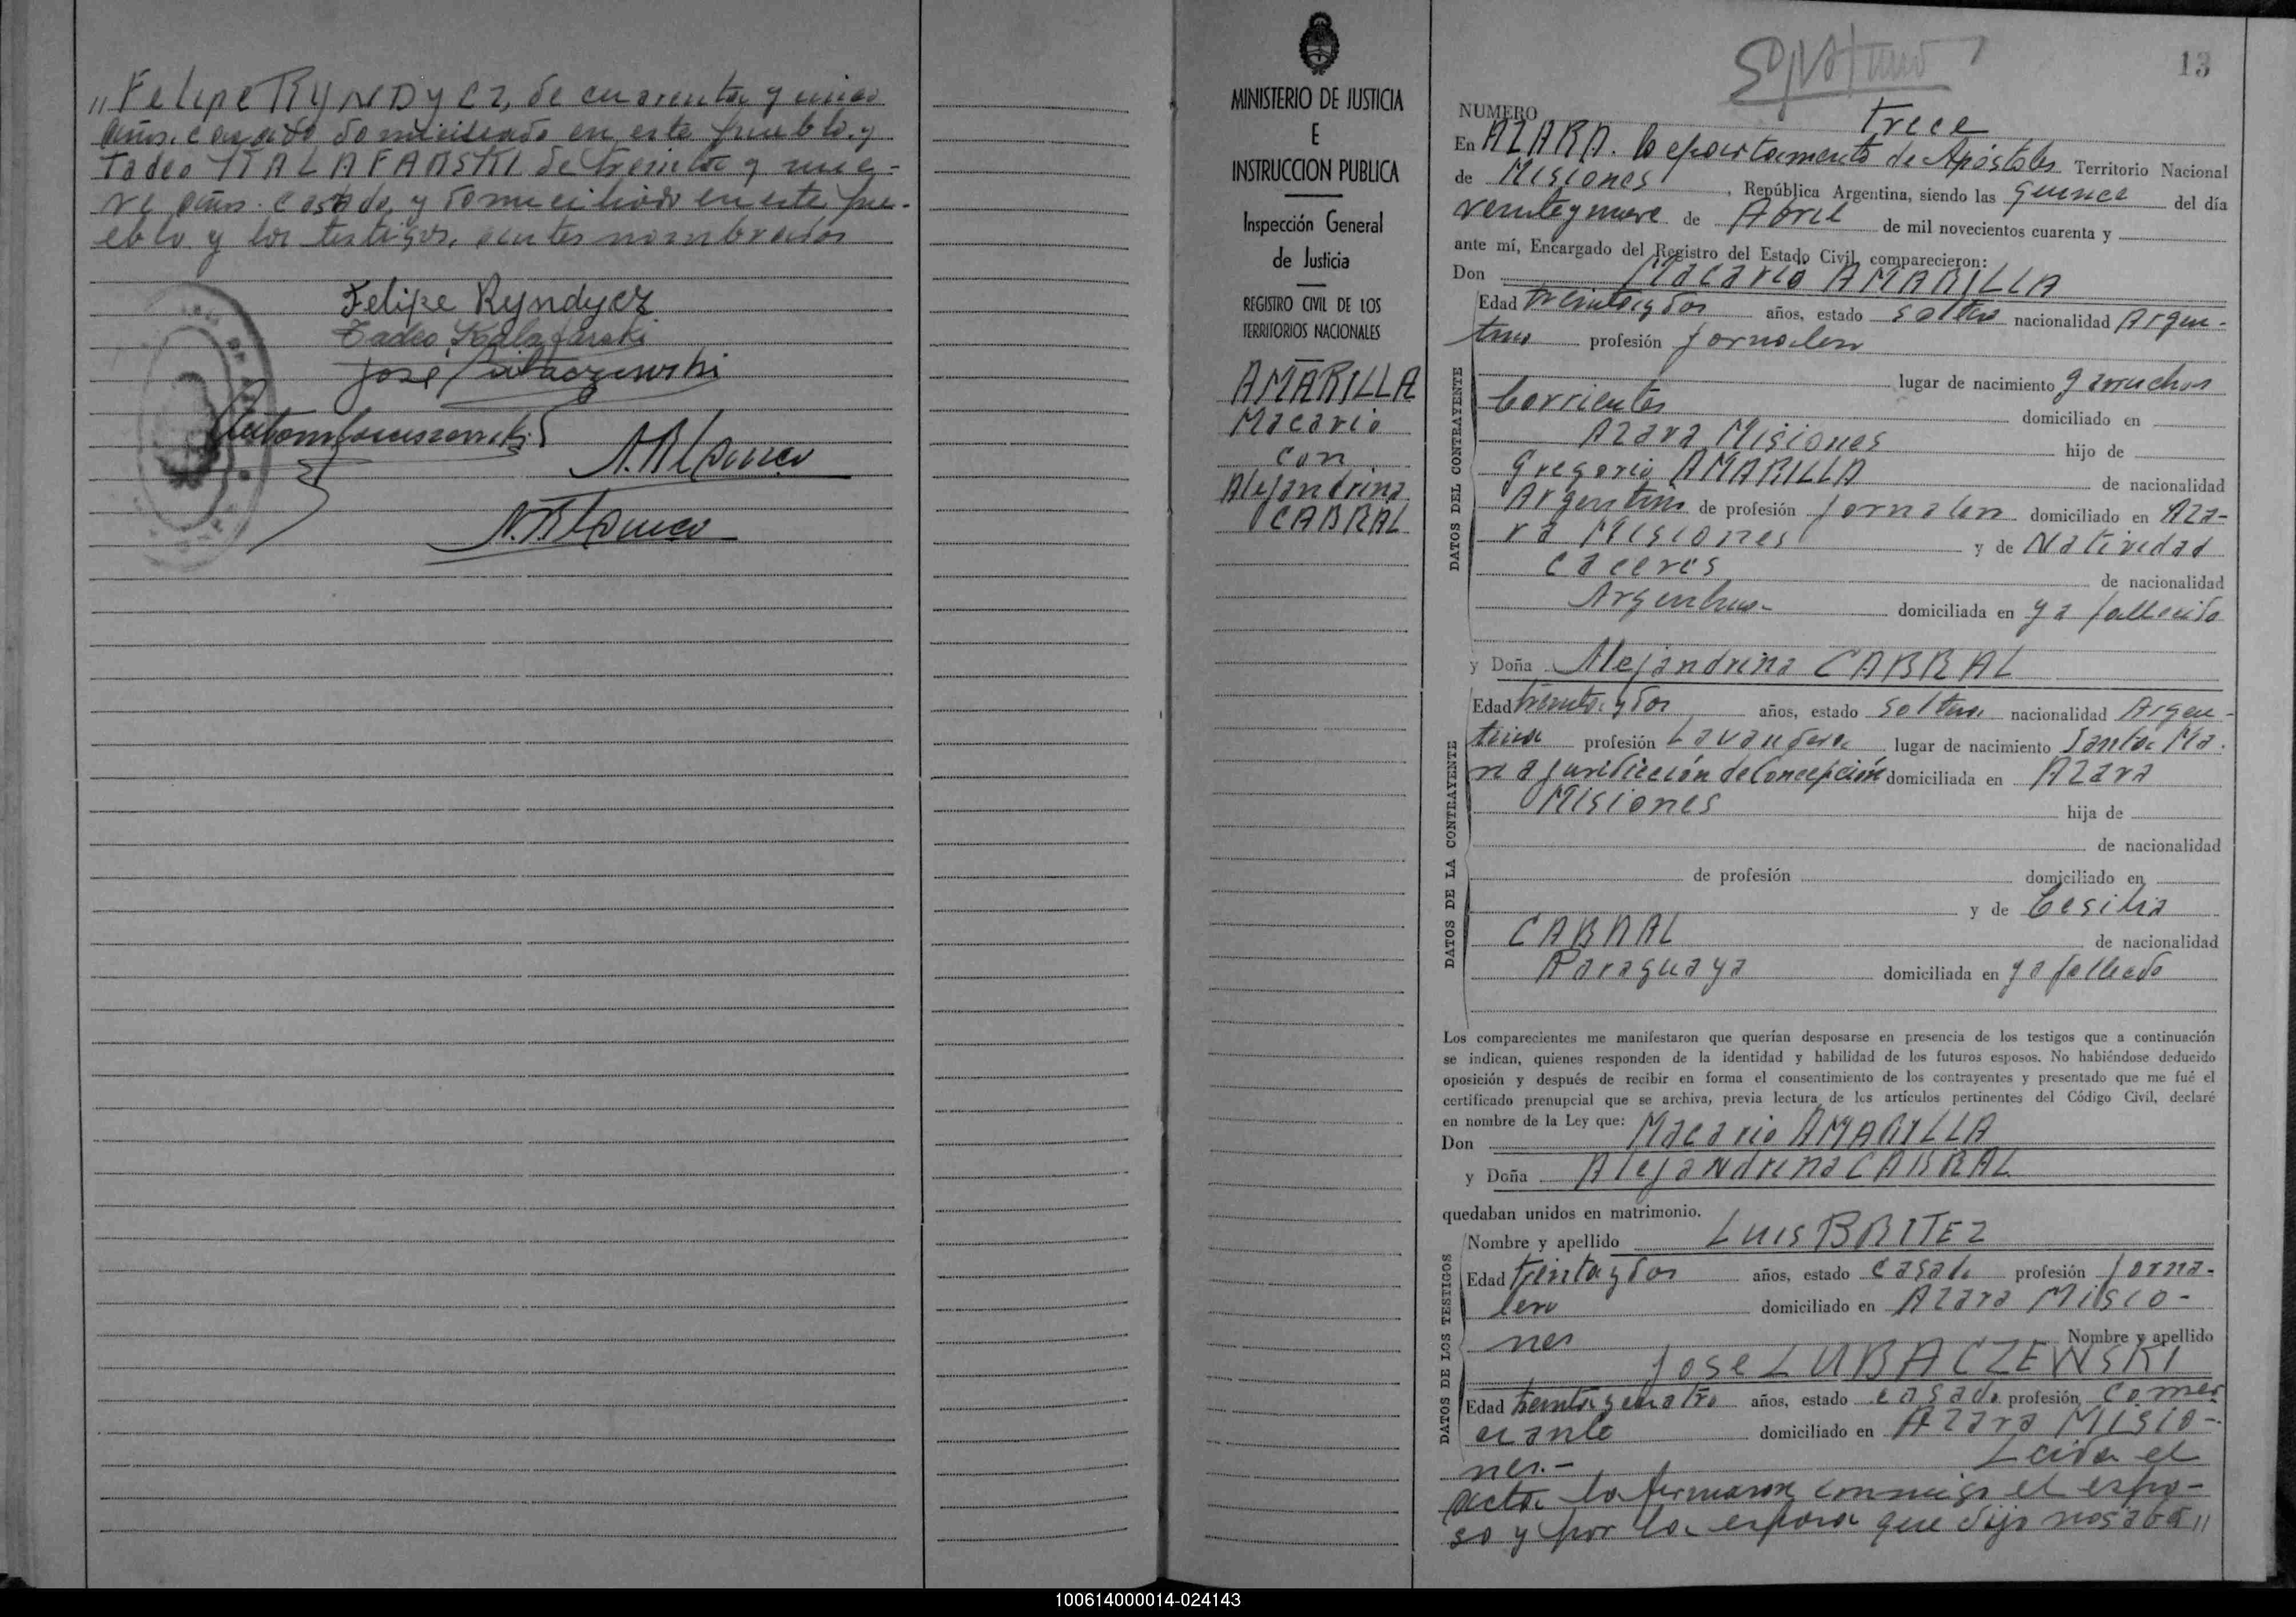 „Felipe RYNDYCZ, de cuarenta y cinco
años. casado domiciliado en este pueblo. y
Tadeo KALAFARSKI de treinta y nue-
ve años. casado, y domiciliado en este pu-
eblo y los testigos, antes nombrados
Felipe Ryndycz
Tadeo Kalafarski
José
A. Blanco
N. Blanco
MINISTERIO DE JUSTICIA
E
INSTRUCCION PUBLICA
Inspección General
de Justicia
REGISTRO CIVIL DE LOS
TERRITORIOS NACIONALES
AMARILLA
Macario
con
Alejandrina
CABRAL
13
NUMERO trece
En AZARA. Departamento de Apóstoles Territorio Nacional
de Misiones, República Argentina, siendo las quince del día
veintegnueve de Abril de mil novecientos cuarenta y
ante mí, Encargado del Registro del Estado Civil, comparecieron:
Don Macario AMARILLA
Edad treintaydos años, estado soltero nacionalidad Argen-
tino profesión Jornalero
lugar de nacimiento Garruchos
Corrientes domiciliado en
Azara Misiones hijo de
Gregorio AMARILLA de nacionalidad
Argentino de profesión Jornalero domiciliado en Aza-
ra Misiones y de Natividad
Caceres de nacionalidad
Argentina- domiciliada en ya fallecida
DATOS DEL CONTRAYENTE
y Doña Alejandrina CABRAL
Edad treintaydos años, estado soltera nacionalidad Argen-
tina profesión Lavandera lugar de nacimiento Santa Ma.
ria jurisdicción de Concepción domiciliada en Azara
Misiones hija de
de nacionalidad
de profesión domiciliado en
y de Cesilia
CABRAL de nacionalidad
Paraguaya domiciliada en ya fallecida
DATOS DE LA CONTRAYENTE
Los comparecientes me manifestaron que querían desposarse en presencia de los testigos que a continuación
se indican, quienes responden de la identidad y habilidad de los futuros esposos. No habiéndose deducido
oposición y después de recibir en forma el consentimiento de los contrayentes y presentado que me fué el
certificado prenupcial que se archiva, previa lectura de los artículos pertinentes del Código Civil, declaré
en nombre de la Ley que:
Don Macario AMARILLA
y Doña Alejandrina CABRAL
quedaban unidos en matrimonio.
Nombre y apellido Luis BRITEZ
Edad treintaydos años, estado casado profesión Jorna-
lero domiciliado en Azara Misio-
nes Nombre y apellido
Jose LUBACZEWSKI
Edad treintaycuatro años, estado casado profesión comer
ciante domiciliado en Azara Misio-
nes.- Leida el
acta la firmaron conmigo el espo-
so y por la esposa que dijo nosaba„
DATOS DE LOS TESTIGOS
100614000014-024143